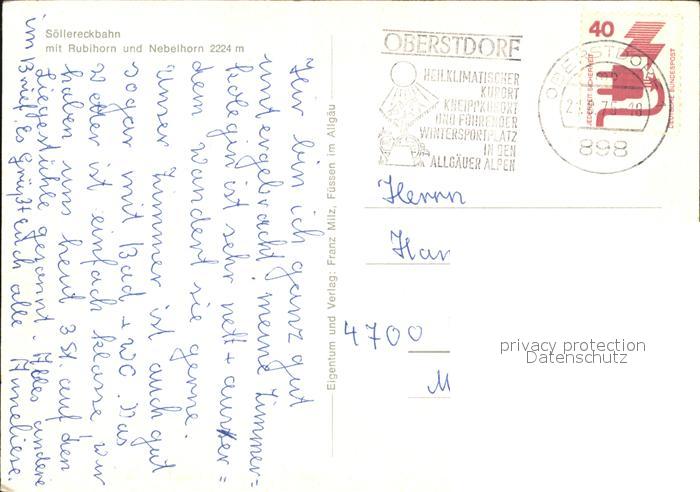 Söllereckbahn
mit Rubihorn und Nebelhorn 2224 m
Hier bin ich ganz gut
untergebracht, meine Zimmer=
kollegin ist sehr nett + außer=
dem wandert sie gerne.
Unser Zimmer ist auch gut
sogar mit Bad + WC. Das
Wetter ist einfach klasse, wir
haben uns heut 3 St. auf den
Liegestühle gesonnt. Alles andere
im Brief. Es grüßt Euch alle Anneliese.
Eigentum und Verlag: Franz Milz, Füssen im Allgäu
OBERSTDORF
HEILKLIMATISCHER
KURORT
KNEIPPKURORT
UND FÜHRENDER
WINTERSPORTPLATZ
IN DEN
ALLGÄUER ALPEN
OBERSTDORF
898
40
JEDERZEIT SICHERHEIT
DEUTSCHE BUNDESPOST
Herrn
Har
4700
M
privacy protection
Datenschutz